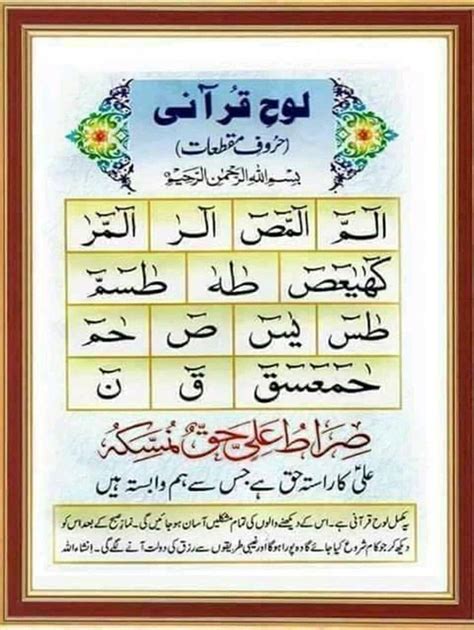 لوح قرآنی
(حروف مقطعات)
بسم الله الرحمن الرحيم
الٓمّٓ الٓمّٓصٓ الٓرٰ الٓمّٓرٰ
كٓهٰيٰعٓصٓ طٰهٰ طٰسٓمّٓ
طٰسٓ يٰسٓ صٓ حٰمٓ
حٰمٓعٓسٓقٓ قٓ نٓ
صِرَاطُ عَلِيٍّ حَقٌّ نُمْسِكُهُ
علیؑ کا راستہ حق ہے جس سے ہم وابستہ ہیں
یہ مکمل لوح قرآنی ہے۔ اس کے دیکھنے والوں کی تمام مشکلیں آسان ہو جائیں گی۔ نماز صبح کے بعد اس کو
دیکھ کر جو کام شروع کیا جائے گا وہ پورا ہوگا اور غیبی طریقوں سے رزق کی دولت آنے لگے گی۔ انشاء اللہ